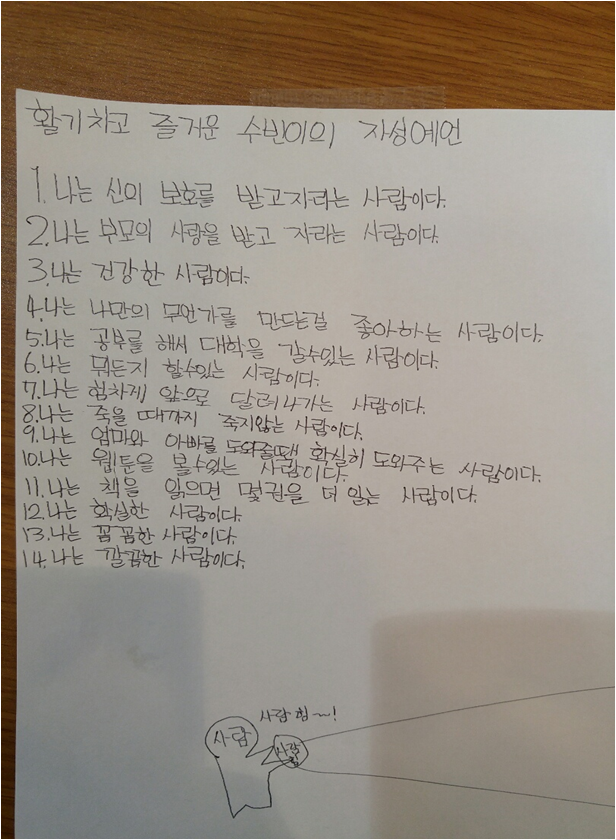 활기차고 즐거운 수빈이의 자성예언
1. 나는 신의 보호를 받고자라는 사람이다.
2. 나는 부모의 사랑을 받고 자라는 사람이다.
3. 나는 건강한 사람이다.
4. 나는 나만의 무언가를 만드는걸 좋아하는 사람이다.
5. 나는 공부를 해서 대학을 갈수있는 사람이다.
6. 나는 뭐든지 할수있는 사람이다.
7. 나는 힘차게 앞으로 달려나가는 사람이다.
8. 나는 죽을 때까지 죽지않는 사람이다.
9. 나는 엄마와 아빠를 도와줄땐 확실히 도와주는 사람이다.
10. 나는 웹툰을 볼수있는 사람이다.
11. 나는 책을 읽으면 몇권을 더 읽는 사람이다.
12. 나는 확실한 사람이다.
13. 나는 꼼꼼한 사람이다.
14. 나는 깔끔한 사람이다.
사람 힘~!
사람
사람
힘